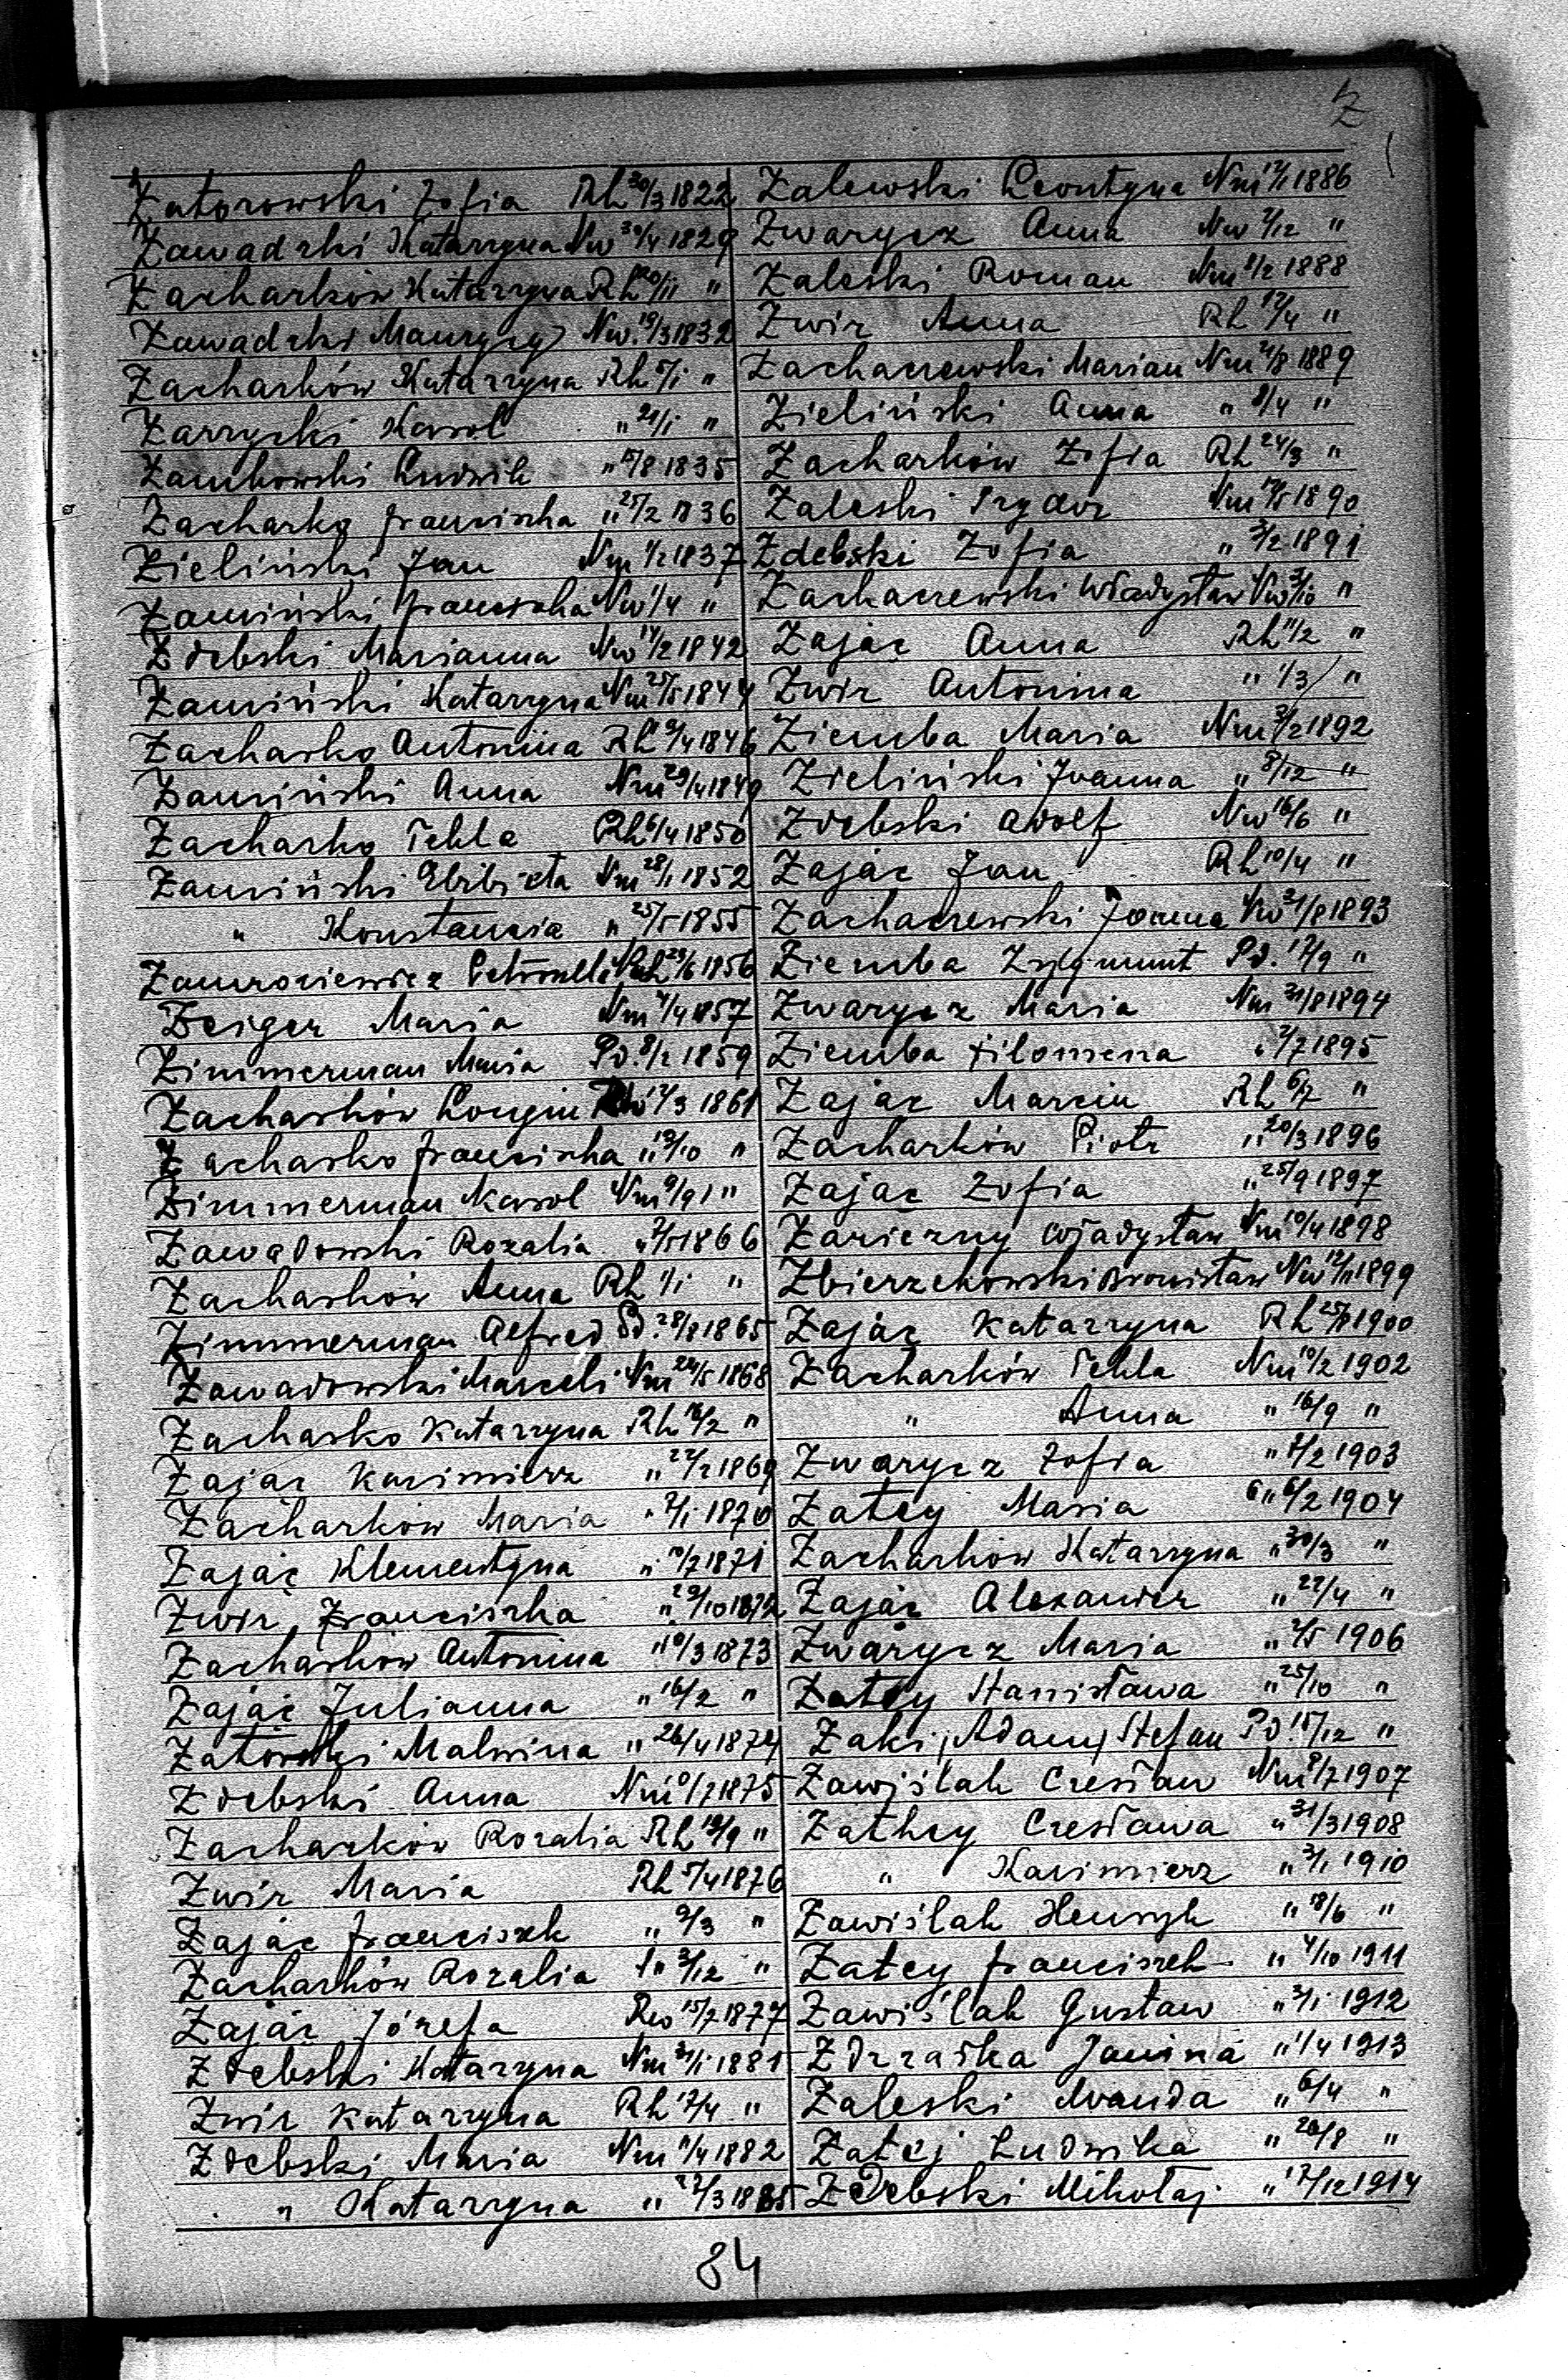 Z
Zatorowski Zofia Rh 20/3 1822
Zawadzki Katarzyna Nw 30/4 1829
Zacharków Katarzyna Rh 20/11 "
Zawadzki Maurycy Nw. 19/3 1832
Zacharków Katarzyna Rh 5/1 "
Zarzycki Karol " 21/1 "
Zamkowski Ludwik " 15/8 1835
Zacharko Franciszka " 25/2 1836
Zieliński Jan Nm 1/2 1837
Zamiński Franciszka Nw 1/4 "
Zdebski Marianna Nw 14/2 1842
Zamiński Katarzyna Nm 25/5 1844
Zacharko Antonina Rh 9/4 1846
Zamiński Anna Nm 29/4 1849
Zacharko Tekla Rh 6/4 1850
Zamiński Elżbieta Nm 28/1 1852
" Konstancia " 25/5 1855
Petronella Rh 29/6 1856
Zeiger Maria Nm 4/4 1857
Zimmerman Maria Pd. 8/2 1859
Zacharków Longin 17/3 1861
Zacharko Franciszka " 12/10 "
Zimmerman Karol Nm 9/9 "
Zawadowski Rozalia " 2/5 1866
Zacharków Anna Rh 1/1 "
Zimmerman Alfred Pd. 28/8 1865
Zawadowski Marceli Nm 24/5 1868
Zacharko Katarzyna Rh 16/2 "
Zając Kazimierz " 22/2 1869
Zacharków Maria " 7/1 1870
Zając Klementyna " 10/7 1871
Zwir Franciszka " 29/10 1872
Zacharków Antonina " 10/3 1873
Zając Julianna " 16/2 "
Malwina " 26/4 1874
Zdebski Anna Nm 10/7 1875
Zacharków Rozalia Rh 12/9 "
Zwir Maria Rh 5/4 1876
Zając Franciszek " 9/3 "
Zacharków Rozalia " 3/12 "
Zając Józefa Rw 15/7 1877
Zdebski Katarzyna Nm 31/1 1881
Zwir Katarzyna Rh 17/4 "
Zdebski Maria Nm 11/4 1882
" Katarzyna " 22/3 1885
Zalewski Leontyna Nm 12/1 1886
Zwarycz Anna Nw 2/12 "
Zaleski Roman Nm 8/2 1888
Zwir Anna Rh 12/4 "
Zachaczewski Marian Nm 4/8 1889
Zieliński Anna " 8/4 "
Zacharków Zofia Rh 24/3 "
Zaleski Izydor Nm 1890
Zdebski Zofia " 3/2 1891
Zachaczewski Władysław Nw 3/10 "
Zając Anna Rh 11/2 "
Zwir Antonina " 1/3 "
Ziemba Maria Nm 1892
Zieliński Joanna " 8/12 "
Zdebski Adolf Nw 16/6 "
Zając Jan Rh 10/4 "
Zachaczewski Joanna Nw 21/8 1893
Ziemba Zygmunt Pd. 17/9 "
Zwarycz Maria Nm 31/8 1894
Ziemba Filomena " 7/7 1895
Zając Marcin Rh 6/7 "
Zacharków Piotr " 20/3 1896
Zając Zofia " 25/9 1897
Zarierny Władysław Nm 10/4 1898
Zbierzchowski Bronisław Nw 12/11 1899
Zając Katarzyna Rh 25/8 1900
Zacharków Tekla Nm 10/2 1902
" Anna " 16/9 "
Zwarycz Zofia " 8/2 1903
Zatey Maria " 6/2 1904
Zacharków Katarzyna " 30/3 "
Zając Alexander " 22/4 "
Zwarycz Maria " 2/5 1906
Zatey Stanisława " 25/10 "
Zaki, Adam, Stefan Pd. 15/12 "
Zawiślak Czesław Nm 8/7 1907
Zathey Czesława " 31/3 1908
" Kazimierz " 3/1 1910
Zawiślak Henryk " 18/6 "
Zatey Franciszek " 4/10 1911
Zawiślak Gustaw " 3/1 1912
Zdrzaśka Janina " 1/4 1913
Zaleski Wanda " 6/4 "
Zatéj Ludwika " 20/8 "
Zdebski Mikołaj " 17/12 1914
84